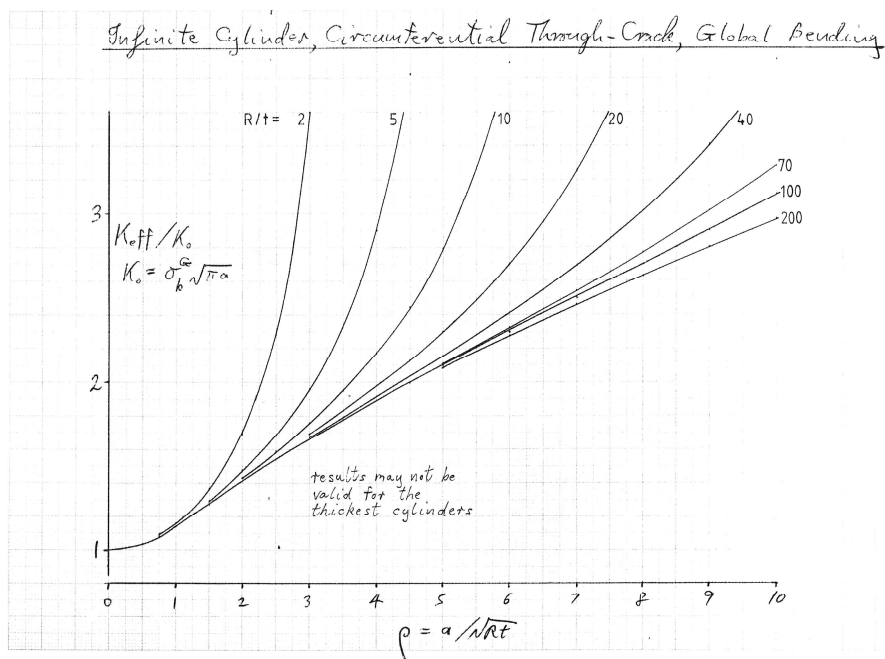 Infinite Cylinder, Circumferential Through-Crack, Global Bending
R/t = 2 5 10 20 40
70
100
200
3
Keff/K₀
K₀ = σ_b^G √πa
2
results may not be
valid for the
thickest cylinders
1
0 1 2 3 4 5 6 7 8 9 10
ρ = a/√Rt